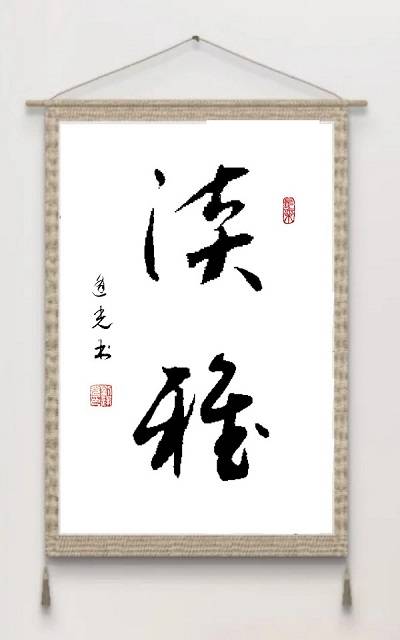 淡雅
逸光书